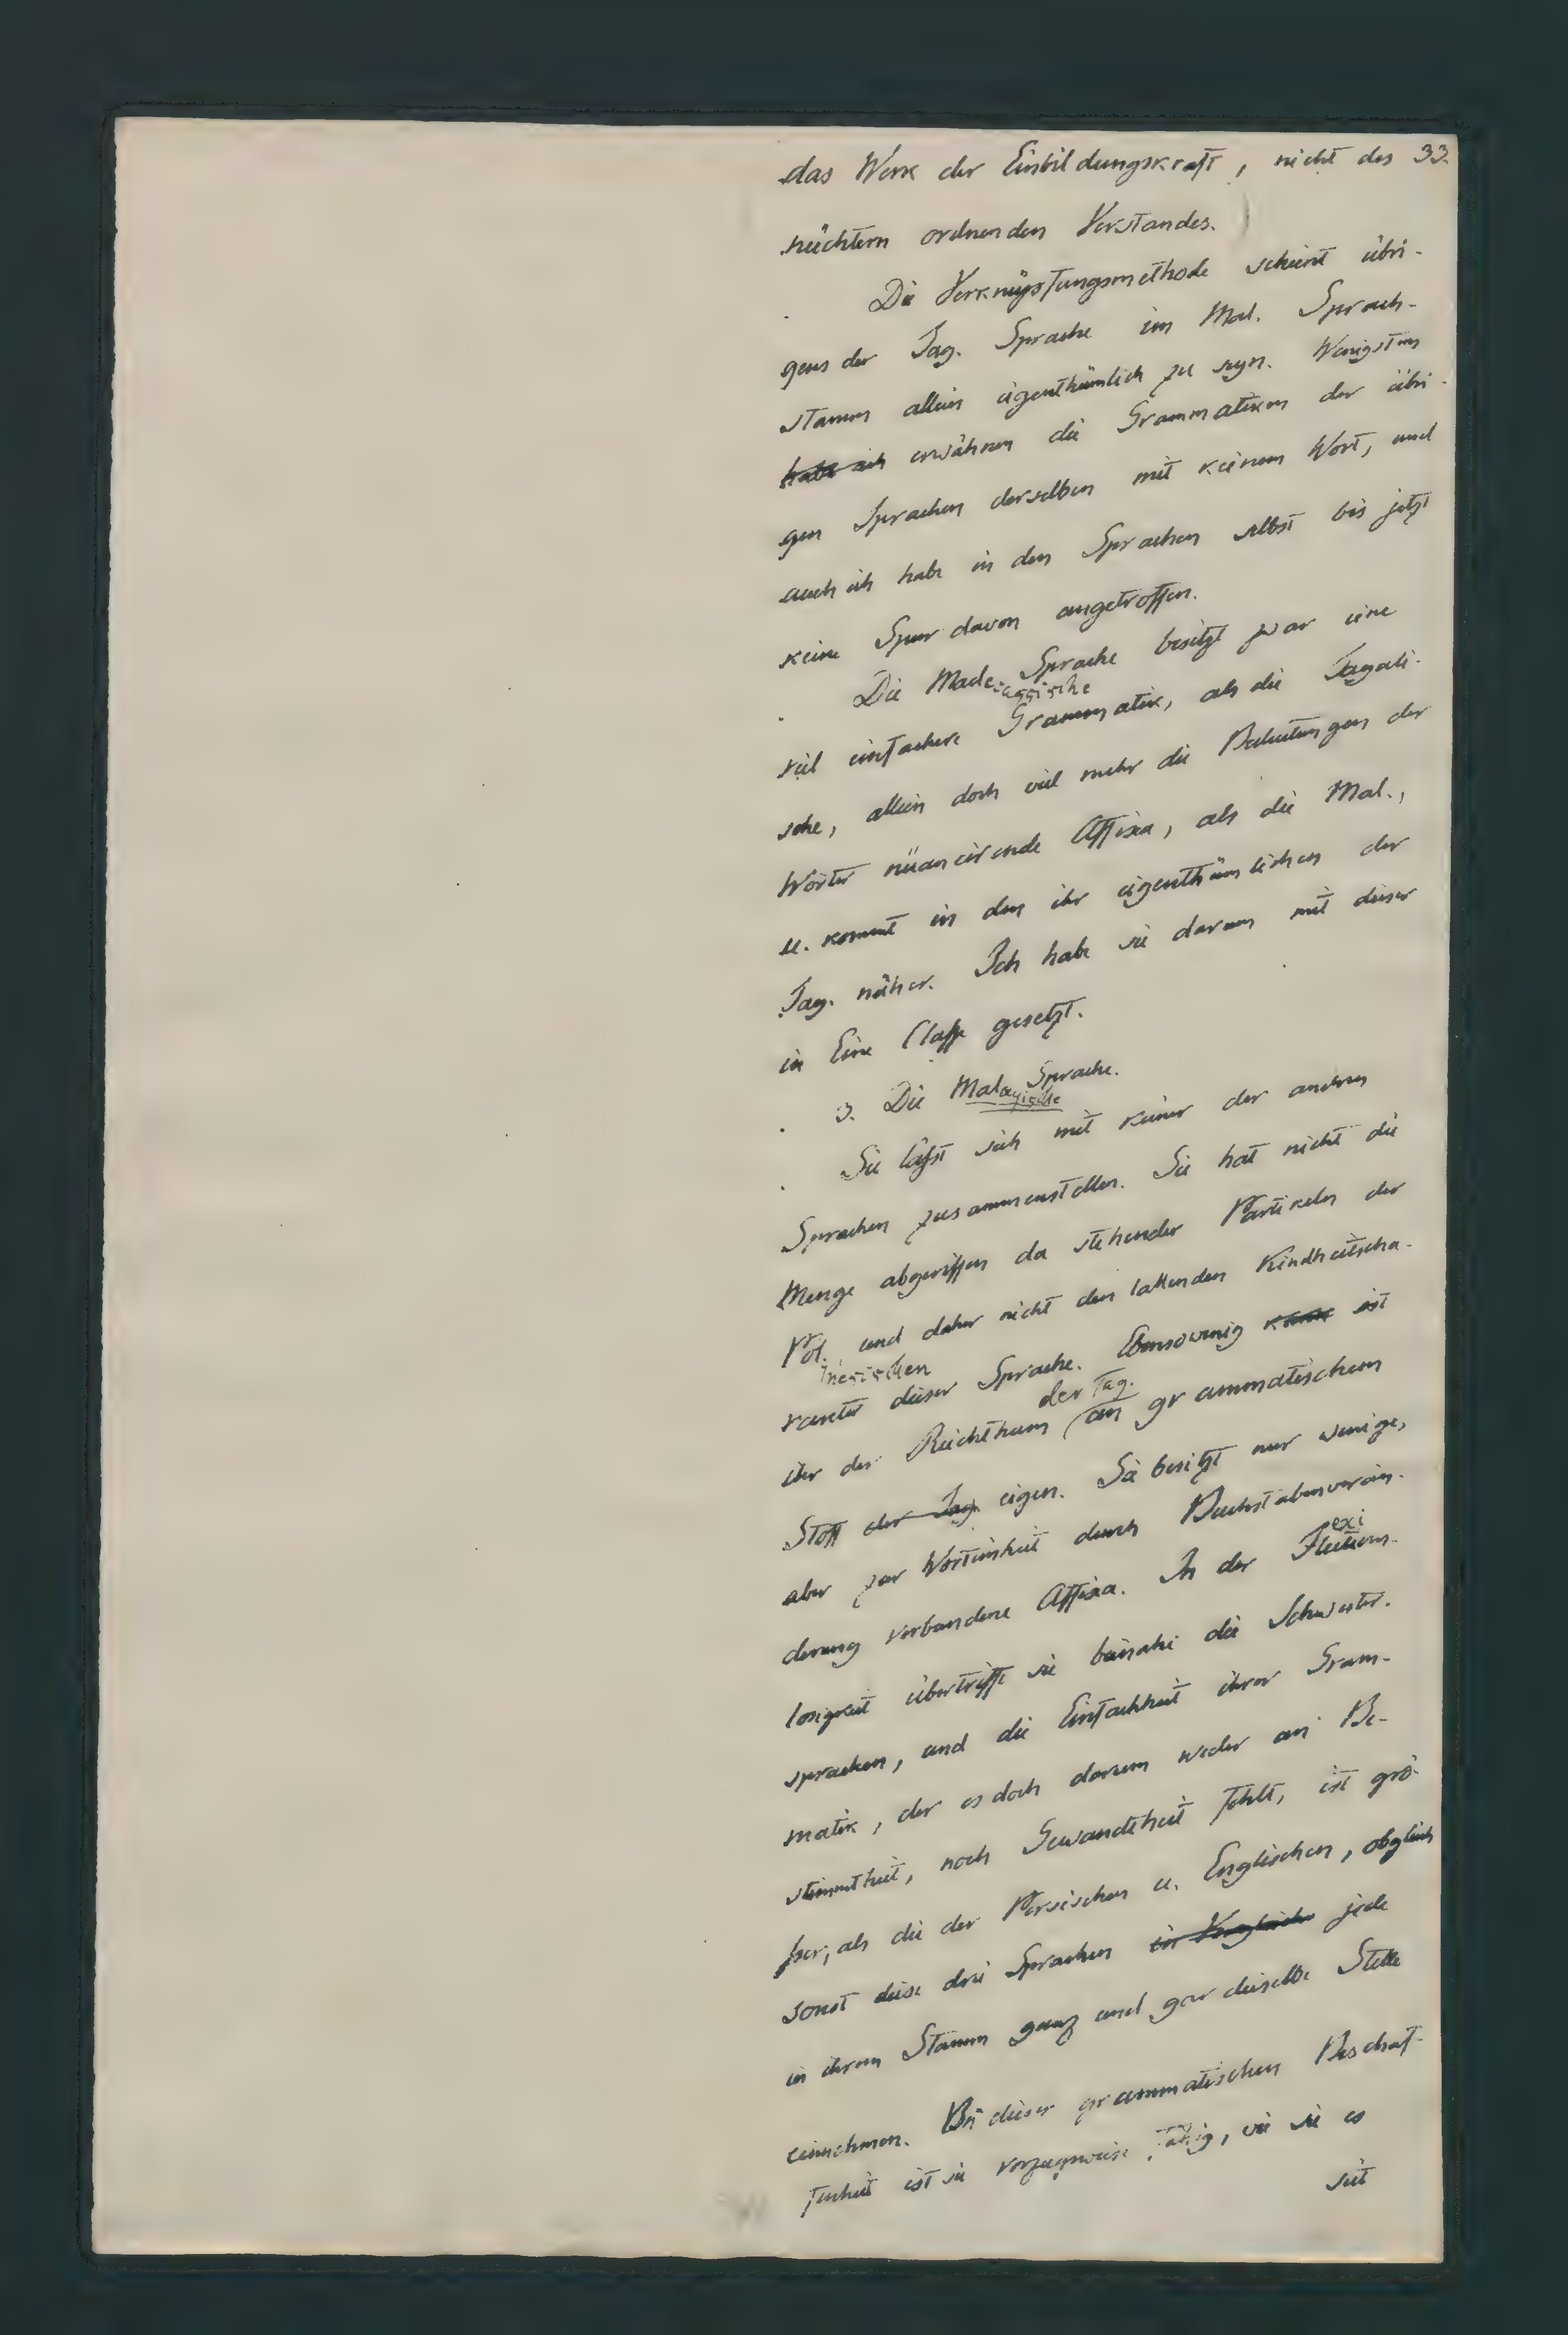 das Werk der Einbildungskraft, nicht des 33.
nüchtern ordnenden Verstandes.
Die Verknüpfungsmethode scheint übri-
gens der Tag. Sprache im Mal. Sprach-
stamm allein eigenthümlich zu seyn. Wenigstens
habe ich erwähnen die Grammatiken der übri-
gen Sprachen derselben mit keinem Wort, und
auch ich habe in den Sprachen selbst bis jetzt
keine Spur davon angetroffen.
Die Madecassische Sprache besitzt zwar eine
viel einfachere Grammatik, als die Tagali-
sche, allein doch viel mehr die Bedeutungen der
Wörter nüancirende Affixa, als die Mal.,
u. kommt in den ihr eigenthümlichen der
Tag. näher. Ich habe sie darum mit dieser
in Eine Classe gesetzt.
3. Die Malayische Sprache.
Sie läßt sich mit keiner der andren
Sprachen zusammenstellen. Sie hat nicht die
Menge abgerissen da stehender Partikeln der
Pol. und daher nicht den lallenden Kindheitscha-
inesischen
rakter dieser Sprache. Ebensowenig kann ist
der Tag.
ihr der Reichthum an grammatischem
Stoff der Tag. eigen. Sie besitzt nur wenige,
aber zur Worteinheit durch Buchstabenverän-
exi
derung verbundene Affixa. In der Flections-
losigkeit übertrifft sie beinahe die Schwester-
sprachen, und die Einfachheit ihrer Gram-
matik, der es doch darum weder an Be-
stimmtheit, noch Gewandtheit fehlt, ist grö-
ßer, als die der Persischen u. Englischen, obgleich
sonst diese drei Sprachen in Vergleich jede
in ihrem Stamm ganz und gar dieselbe Stelle
einnehmen. Bei dieser grammatischen Beschaf-
fenheit ist sie vorzugsweise fähig, wie sie es
seit